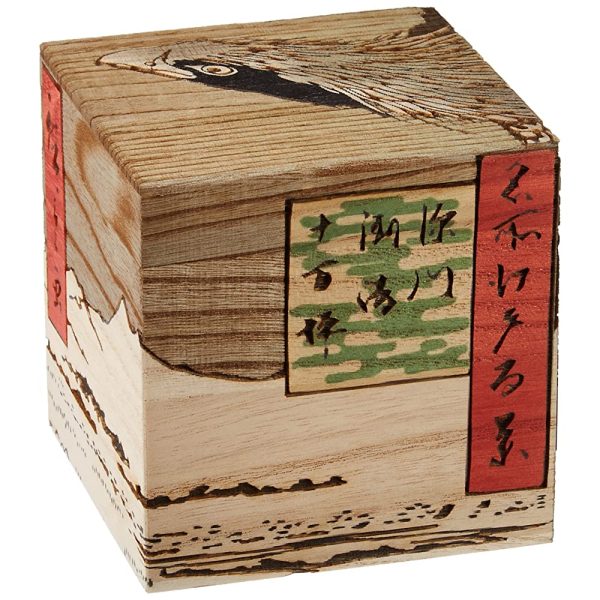 名所江戸百景
深川
洲崎
十万坪